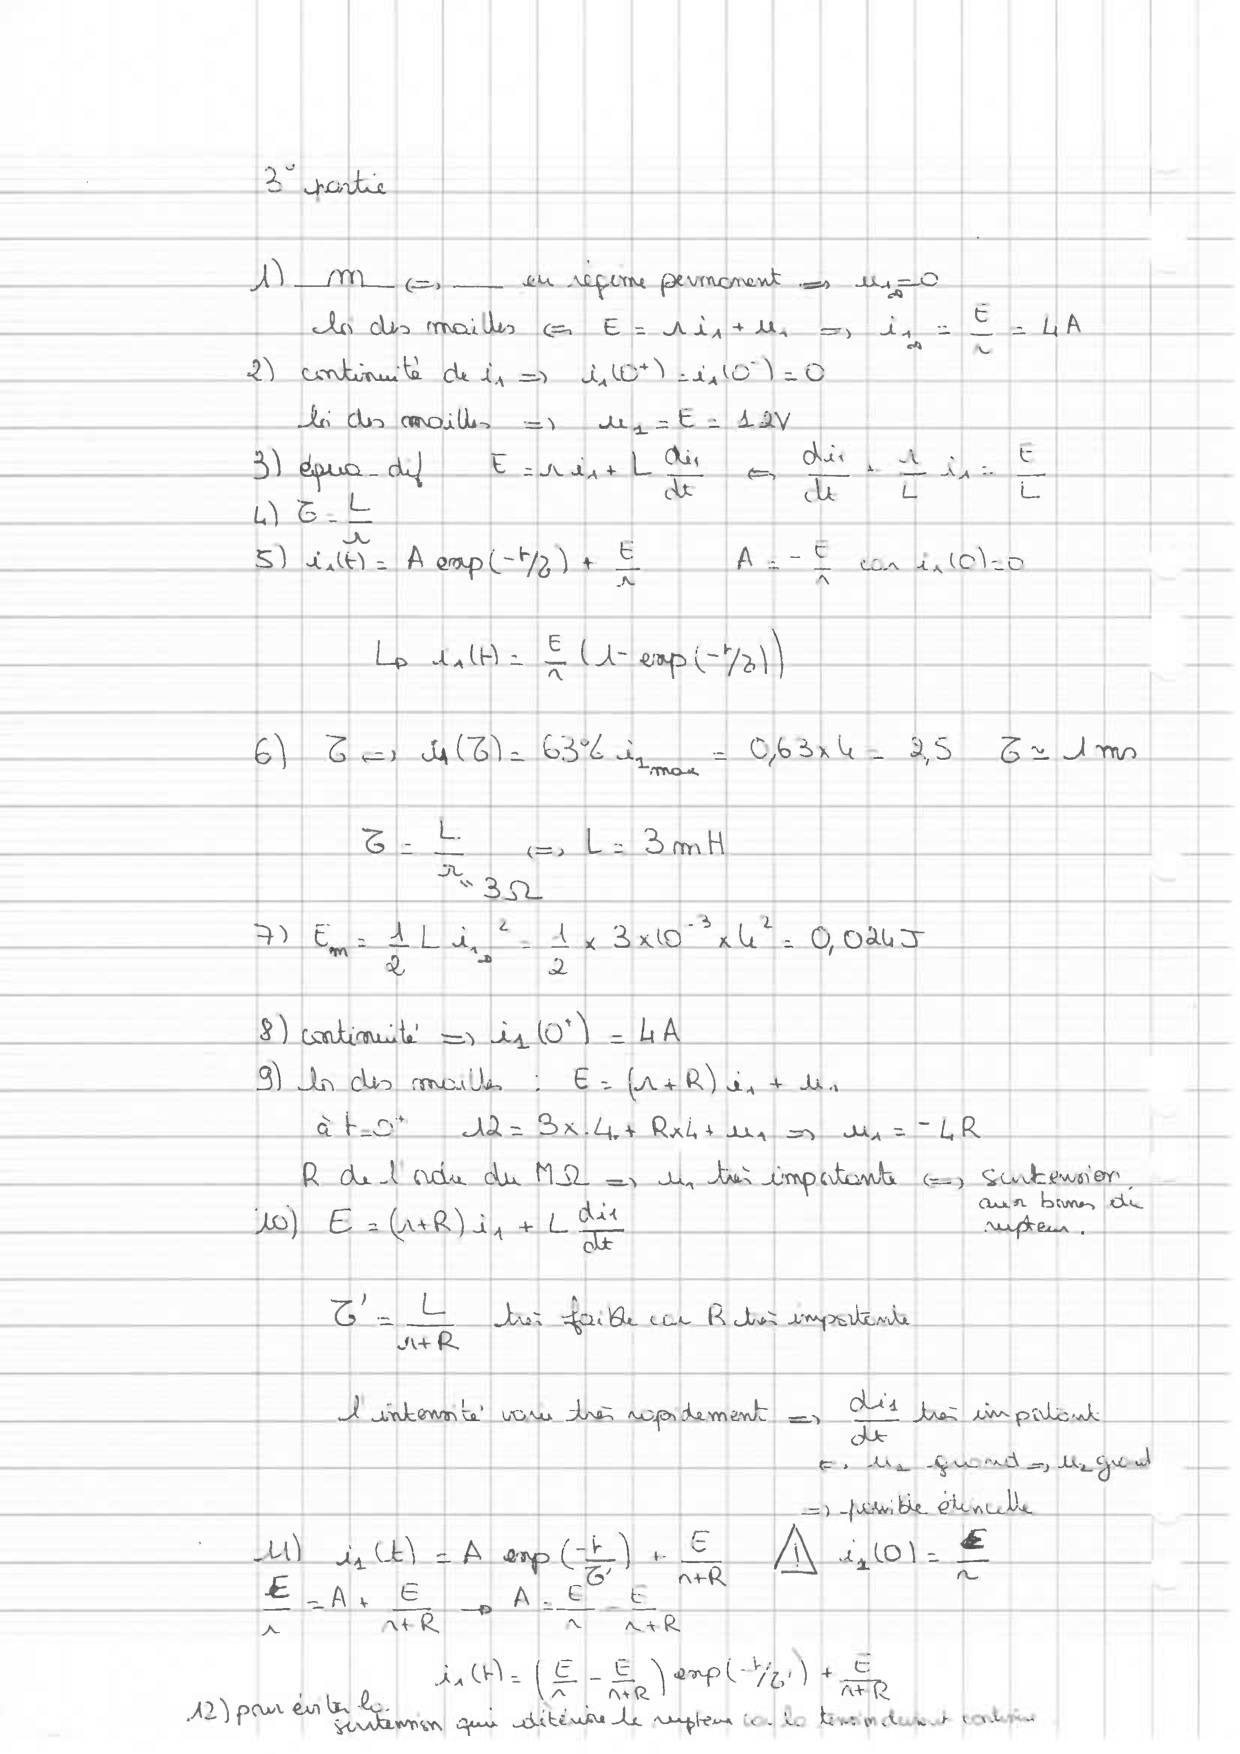 3° partie
1) __m__ <=> ___ en régime permanent => u₁∞=0
loi des mailles <= E = r i₁ + u₁ => i₁∞ = E/r = 4A
2) continuité de i₁ => i₁(0⁺) = i₁(0⁻) = 0
loi des mailles => u₁ = E = 12V
3) équa-dif E = r i₁ + L di₁/dt <=> di₁/dt + r/L i₁ = E/L
4) τ = L/r
5) i₁(t) = A exp(-t/τ) + E/r A = - E/r car i₁(0)=0
↳ i₁(t) = E/r (1- exp(-t/τ))
6) τ => i₁(τ) = 63% i₁max = 0,63x4 = 2,5 τ ≃ 1 ms
τ = L/r <=> L = 3 mH
" 3Ω
7) Em = 1/2 L i₁∞² = 1/2 x 3x10⁻³ x 4² = 0,024J
8) continuité => i₁(0⁺) = 4A
9) loi des mailles : E = (r+R) i₁ + u₁
à t=0⁺ 12 = 3x.4 + Rx4 + u₁ => u₁ = -4R
R de l'ordre du MΩ => u₁ très importante <=> surtension
aux bornes du
rupteur.
10) E = (r+R) i₁ + L di₁/dt
τ' = L/(r+R) très faible car R très importante
l'intensité varie très rapidement => di₁/dt très important
u₁ grand => u₂ grand
=> possible étincelle
11) i₁(t) = A exp(-t/τ') + E/(r+R) ⚠ i₁(0) = E/r
E/r = A + E/(r+R) → A = E/r - E/(r+R)
i₁(t) = (E/r - E/(r+R)) exp(-t/τ') + E/(r+R)
12) pour éviter la
surtension qui détériore le rupteur